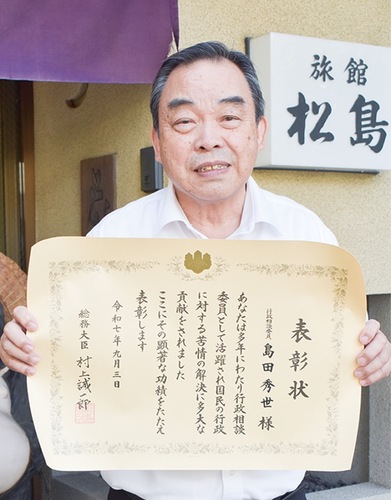 旅館
松島
表彰状
行政相談委員
島田秀世様
あなたは多年にわたり行政相談
委員として活躍され国民の行政
に対する苦情の解決に多大な
貢献をされました
ここにその顕著な功績をたたえ
表彰します
令和七年九月三日
総務大臣 村上誠一郎